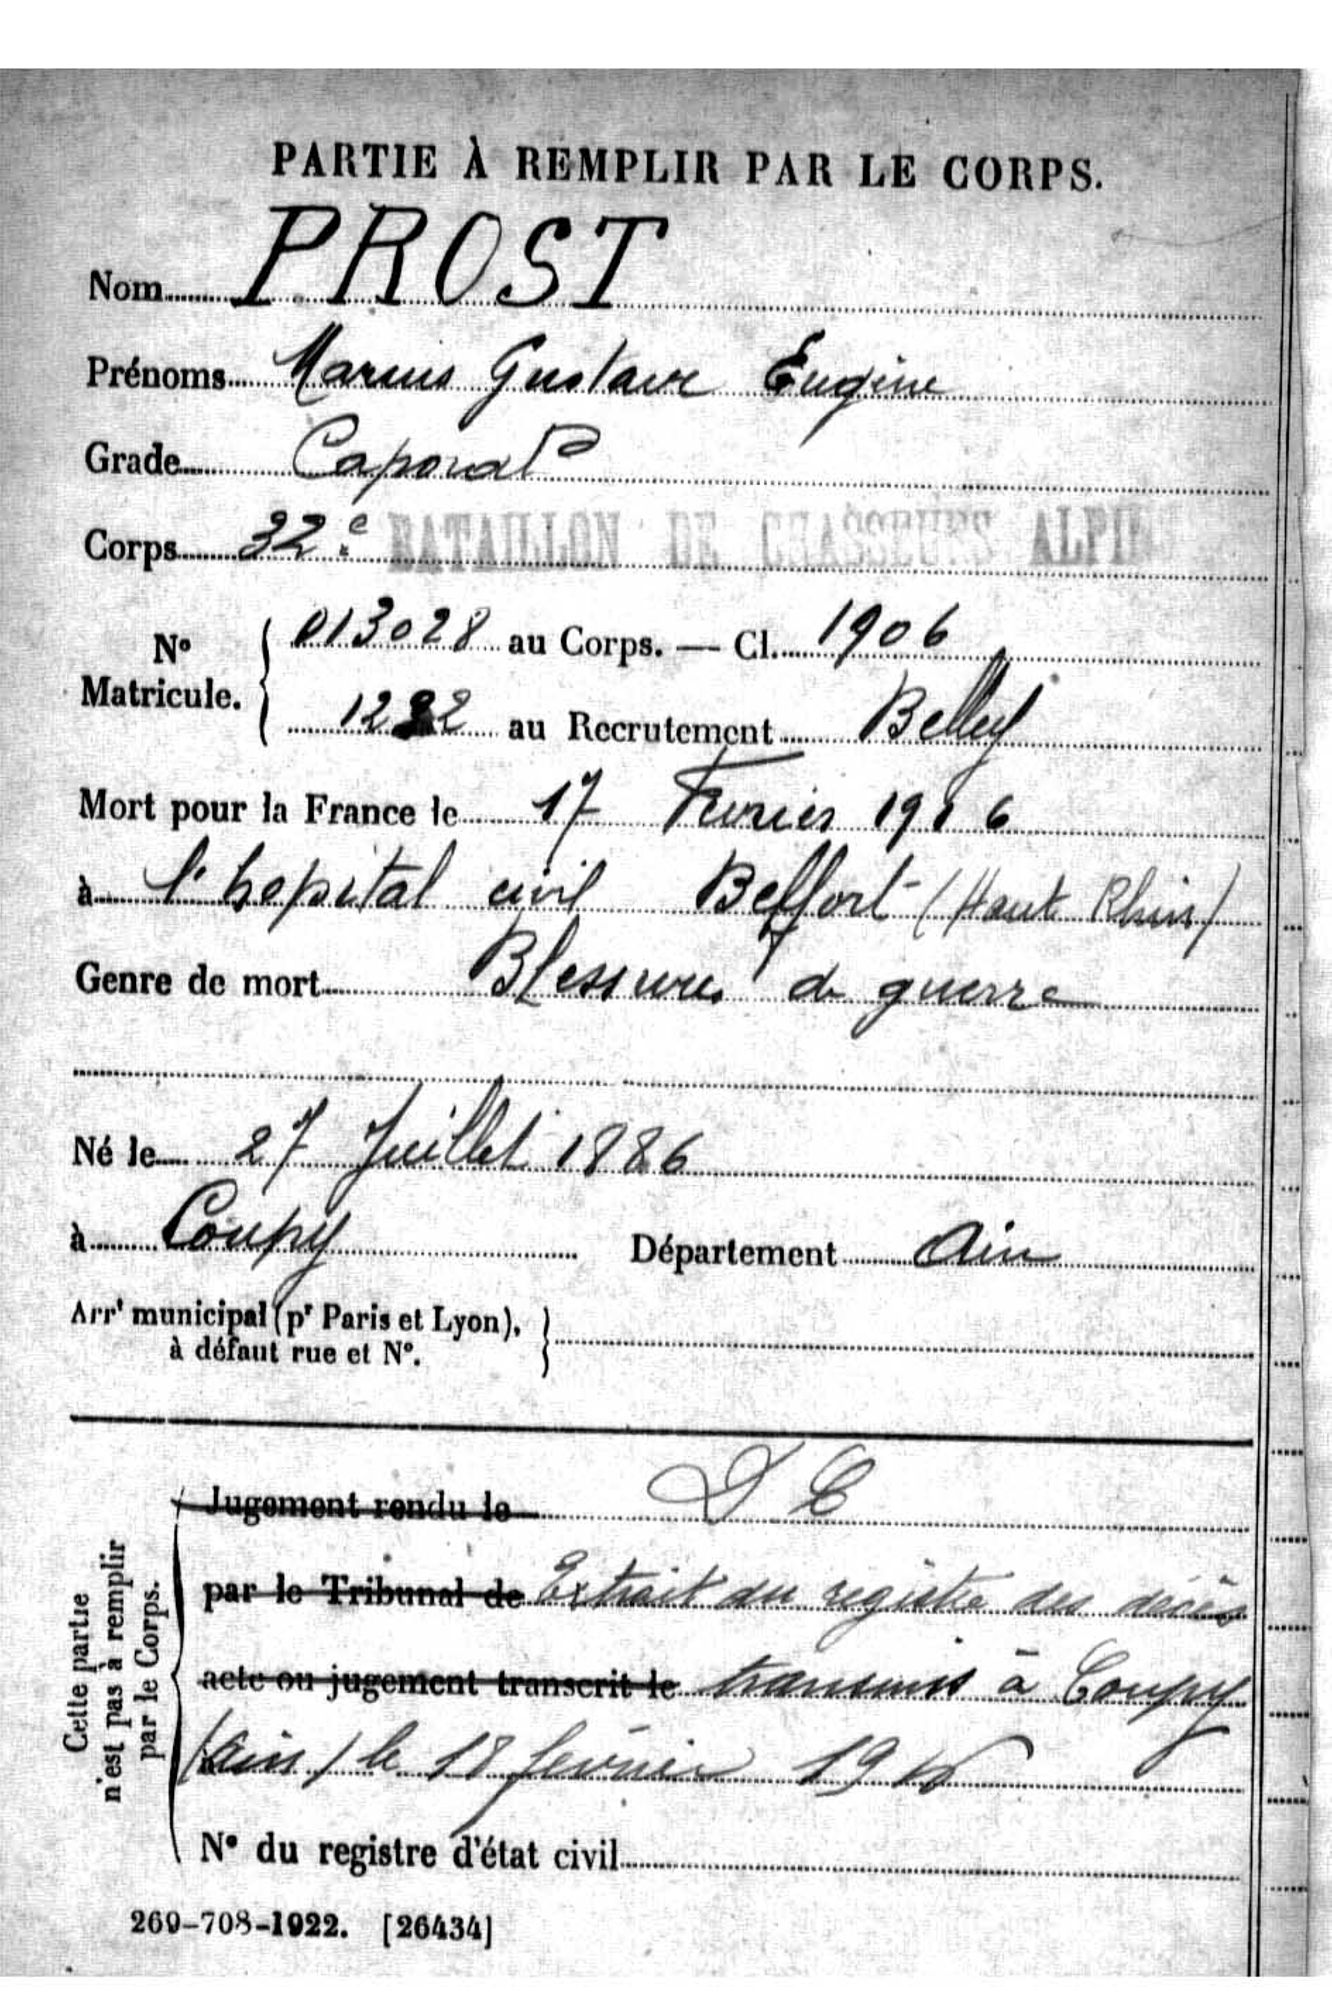 PARTIE À REMPLIR PAR LE CORPS.
Nom PROST
Prénoms Marius Gustave Eugène
Grade Caporal
Corps 32e BATAILLON DE CHASSEURS ALPI
N° Matricule. { 013028 au Corps. — Cl. 1906
12 2 au Recrutement Belley
Mort pour la France le 17 Février 1916
à l'hopital civil Belfort (Haut Rhin)
Genre de mort Blessures de guerre
Né le 27 Juillet 1886
à Coupy Département Ain
Arrt municipal (pr Paris et Lyon), à défaut rue et N°. }
Cette partie n'est pas à remplir par le Corps.
Jugement rendu le
par le Tribunal de Extrait du registre des décès
acte ou jugement transcrit le transmis à Coupy
(Ain) le 18 février 1916
N° du registre d'état civil
269-708-1922. [26434]